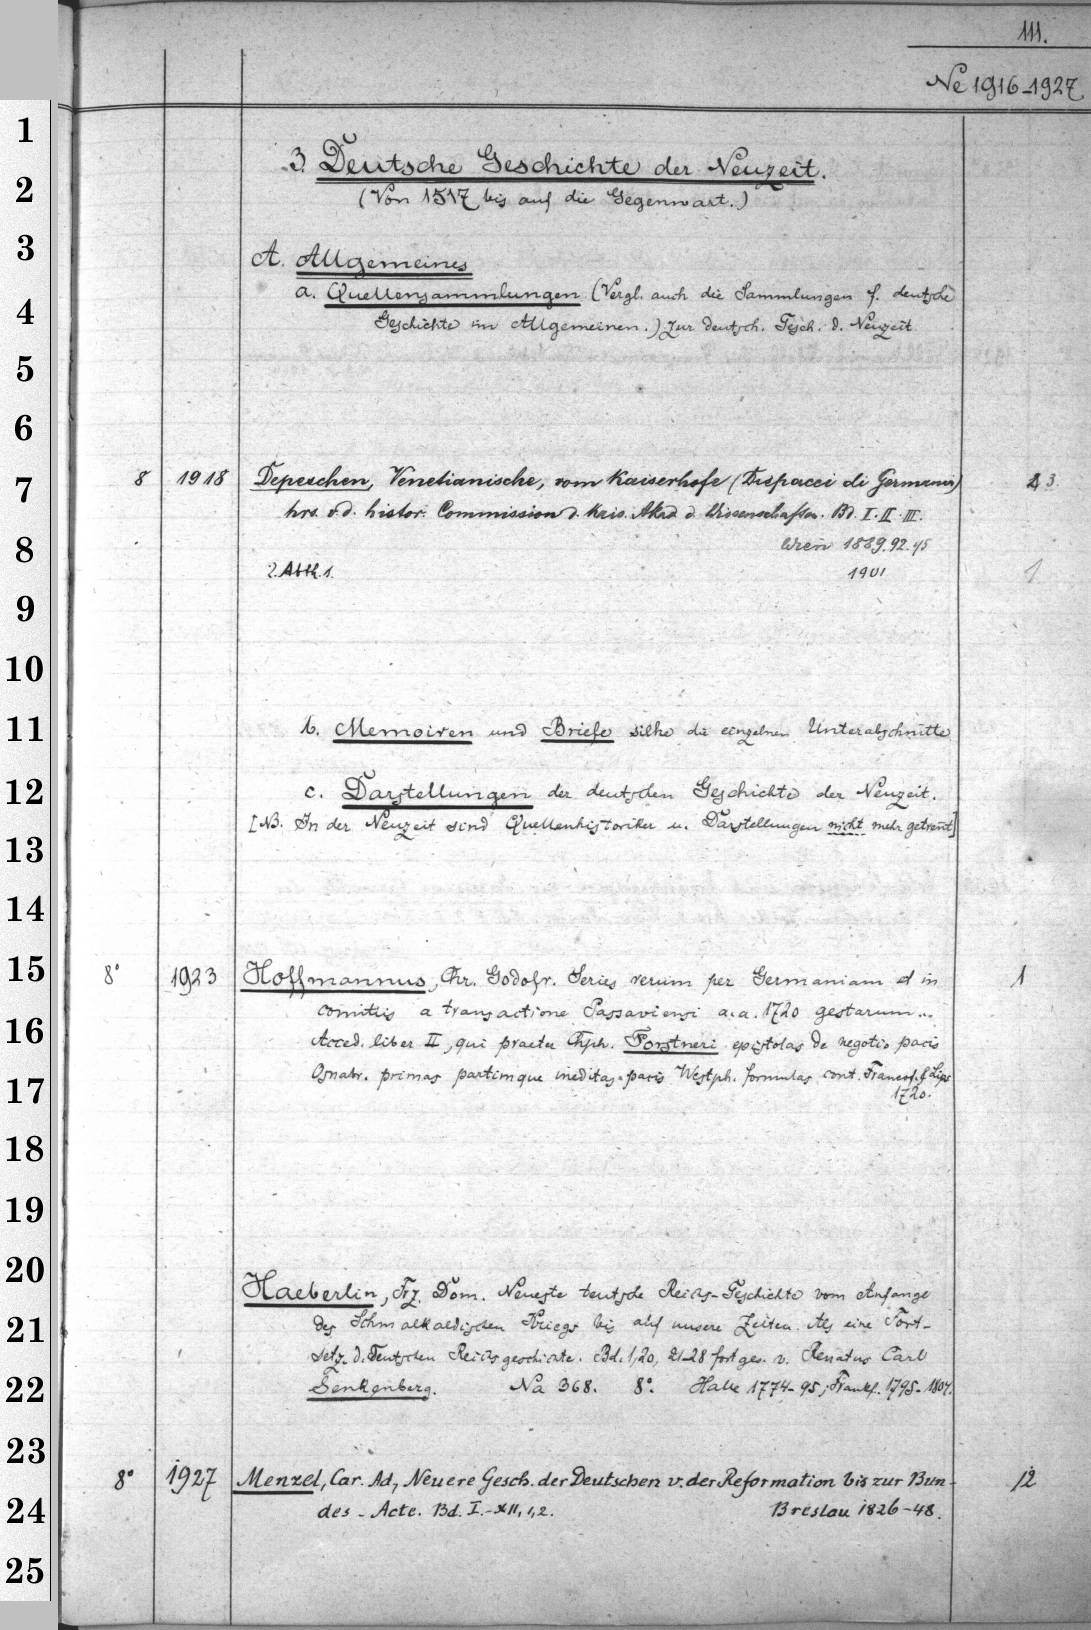 111.
Ne 1916-1927
1
3. Deutsche Geschichte der Neuzeit.
2
(Von 1517 bis auf die Gegenwart.)
3
A. Allgemeines
4
a. Quellensammlungen (Vergl. auch die Sammlungen f. deutsche
Geschichte im Allgemeinen.) zur deutsch. Gesch. d. Neuzeit
5
6
7
8 1918 Depeschen, Venetianische, vom Kaiserhofe (Dispacci di Germania) 3
hrs. v. d. histor. Commission d. Kais. Akad d. Wissenschaften. Bd. I. II. III.
8
Wien 1889.92.95
2. Abth. 1. 1901 1
9
10
11
b. Memoiren und Briefe siehe die einzelnen Unterabschnitte
12
c. Darstellungen der deutschen Geschichte der Neuzeit.
[NB. In der Neuzeit sind Quellenhistoriker u. Darstellungen nicht mehr getrent]
13
14
15
8° 1923 Hoffmannus, Chr. Godofr. Series rerum per Germaniam et in 1
comitiis a transactione Passaviensi a.a. 1720 gestarum...
16
Acced. liber II, qui praeter Chph. Forstneri epistolas de negotio pacis
Osnabr. primas partimque ineditas pacis Westph. formulas cont. Francof. & Lips
17
1720.
18
19
20
Haeberlin, Frz. Dom. Neueste teutsche Reichs-Geschichte vom Anfange
21
des Schmalkaldischen Kriegs bis auf unsere Zeiten. Als eine Fort-
setz. d. Teutschen Reichsgeschichte. Bd. 1,20, 21-28 fortges. v. Renatus Carl
22
Senkenberg. Na 368. 8°. Halle 1774-95; Frankf. 1795-1804.
23
8° 1927 Menzel, Car. Ad., Neuere Gesch. der Deutschen v. der Reformation bis zur Bun- 12
24
des-Acte. Bd. I.-XII, 1,2. Breslau 1826-48.
25